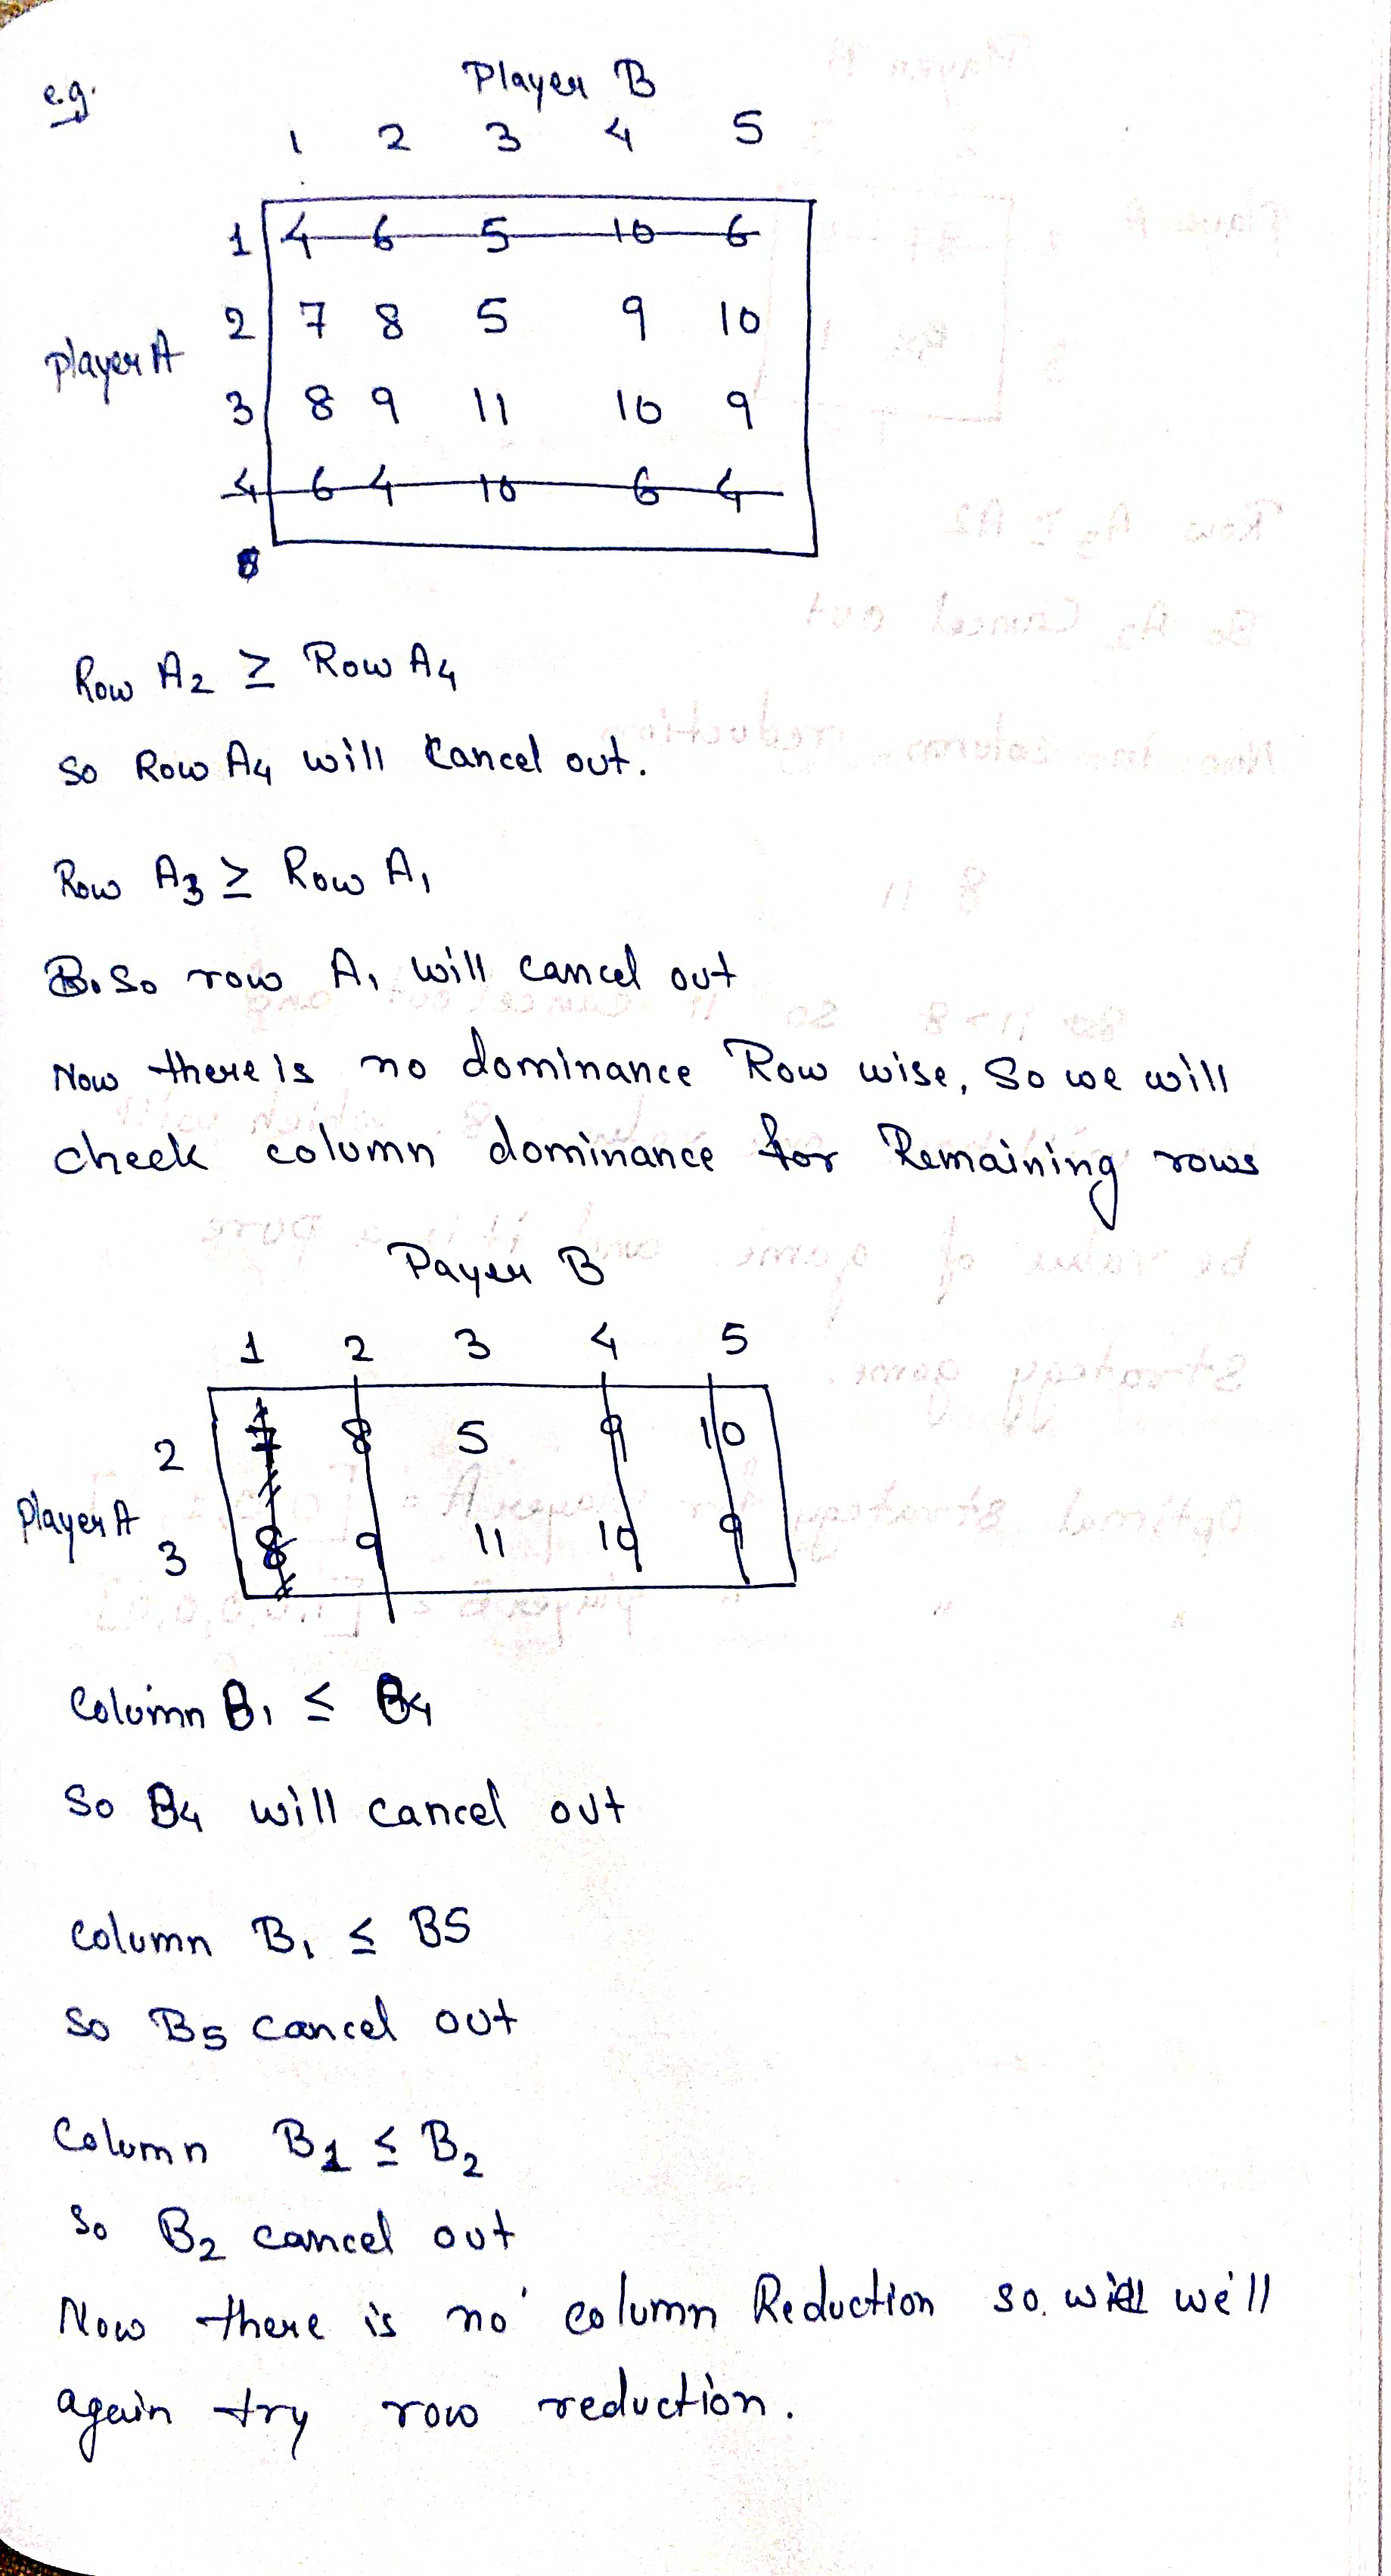 e.g.
Player B
1 2 3 4 5
1 4 6 5 10 6
2 7 8 5 9 10
Player A
3 8 9 11 10 9
4 6 4 10 6 4
Row A2 ≥ Row A4
So Row A4 will Cancel out.
Row A3 ≥ Row A1
So row A1 will cancel out
Now there is no dominance Row wise, So we will
check column dominance for Remaining rows
Payer B
1 2 3 4 5
2 7 8 5 9 10
Player A
3 8 9 11 10 9
Column B1 ≤ B4
So B4 will cancel out
Column B1 ≤ B5
So B5 cancel out
Column B1 ≤ B2
So B2 cancel out
Now there is no column Reduction so we'll
again try row reduction.